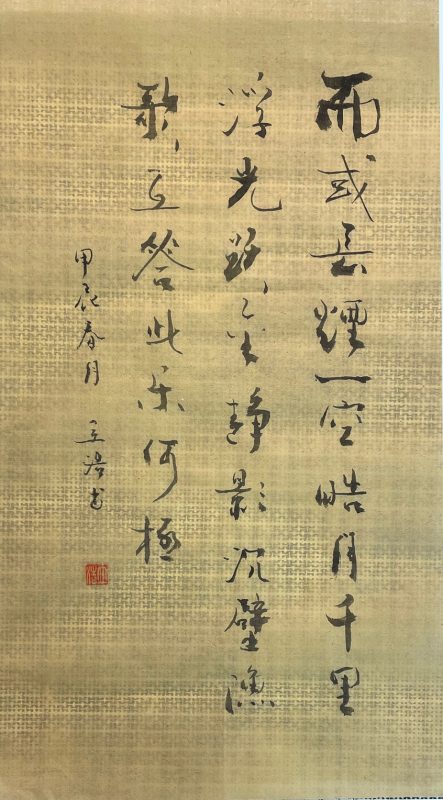 而或長煙一空皓月千里
浮光躍金静影沉璧漁
歌互答此乐何極
甲辰春月 立浩书